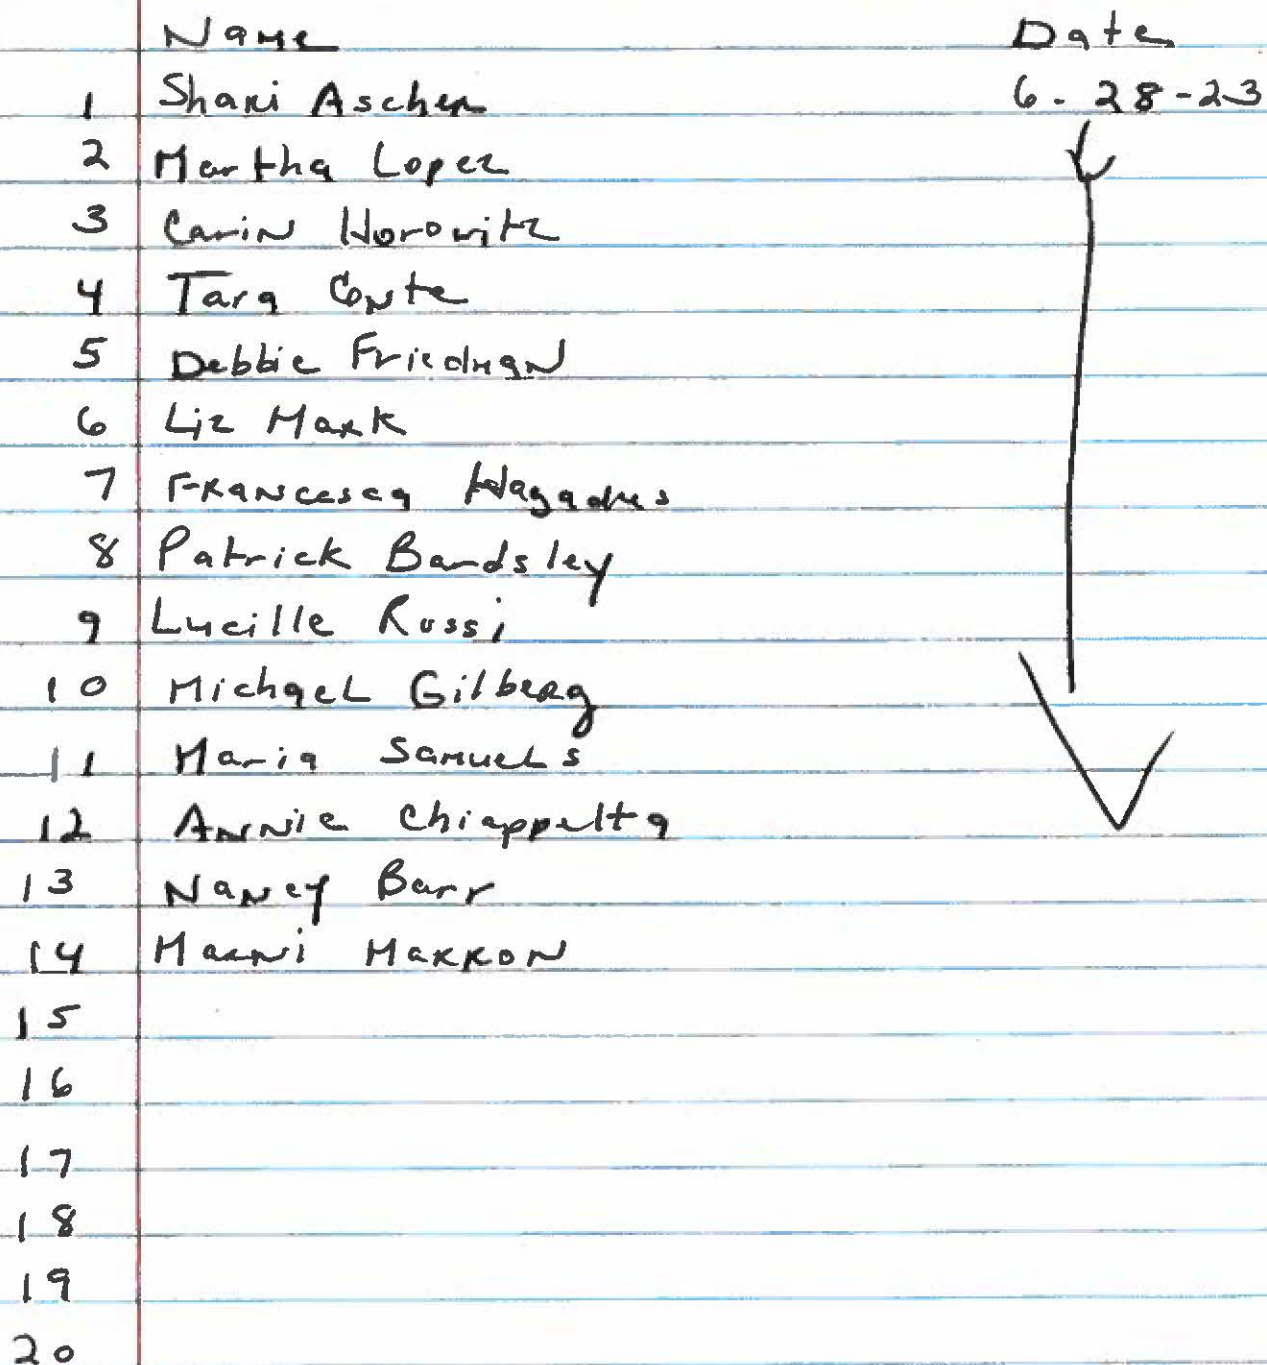 Name Date
1 Shari Ascher 6-28-23
2 Martha Lopez
3 Carin Horowitz
4 Tara Conte
5 Debbie Friedman
6 Liz Mark
7 Francesca Hagadus
8 Patrick Bardsley
9 Lucille Rossi
10 Michael Gilberg
11 Maria Samuels
12 Annie Chiappetta
13 Nancy Barr
14 Marni
15
16
17
18
19
20